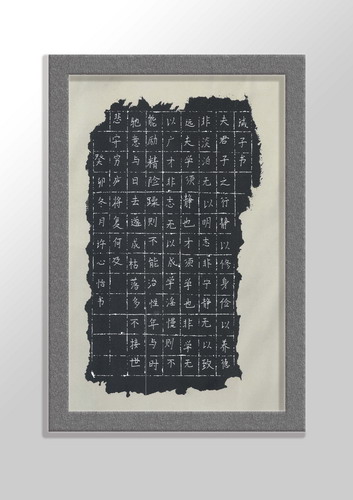 诫子书
夫君子之行静以修身俭以养德
非淡泊无以明志非宁静无以致
远夫学须静也才须学也非学无
以广才非志无以成学淫慢则不
能励精险躁则不能治性年与时
驰意与日去遂成枯落多不接世
悲守穷庐将复何处
癸卯冬月许心怡书